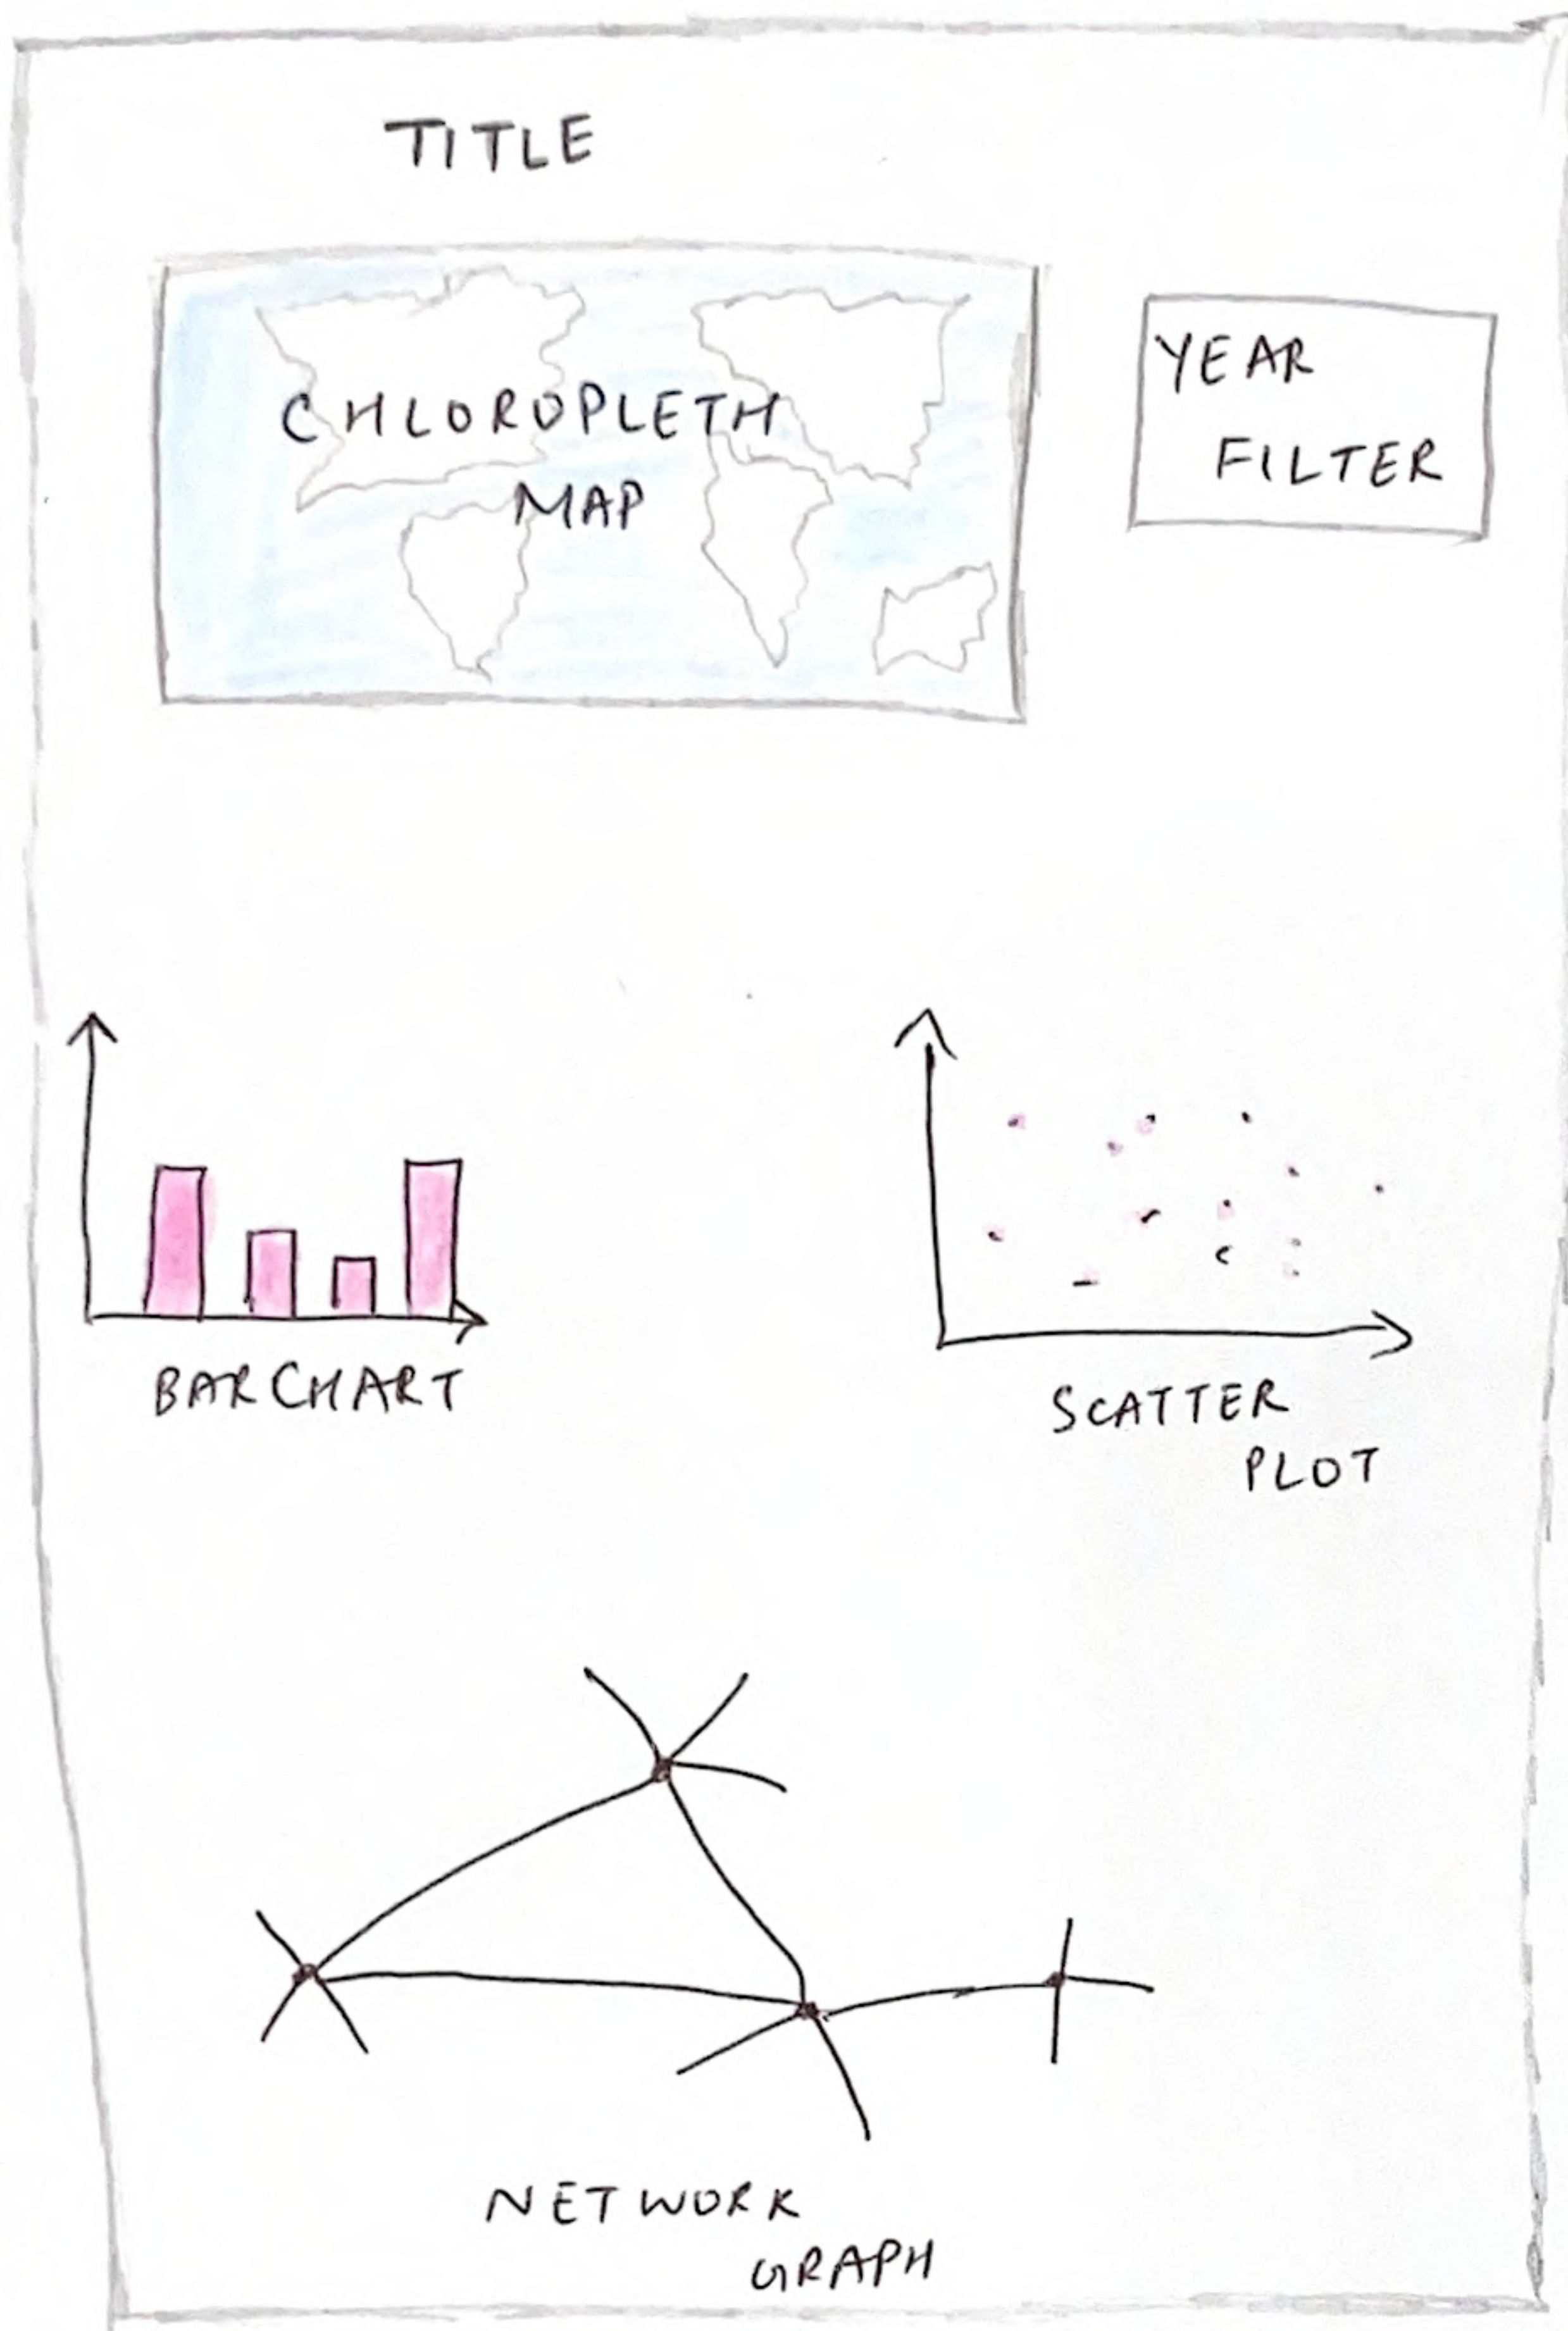 TITLE
CHLOROPLETH
MAP
YEAR
FILTER
BAR CHART
SCATTER
PLOT
NETWORK
GRAPH